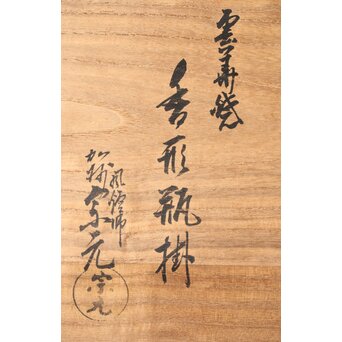 雲華焼
香形瓶掛
風炉師
加柄宗元
宗元